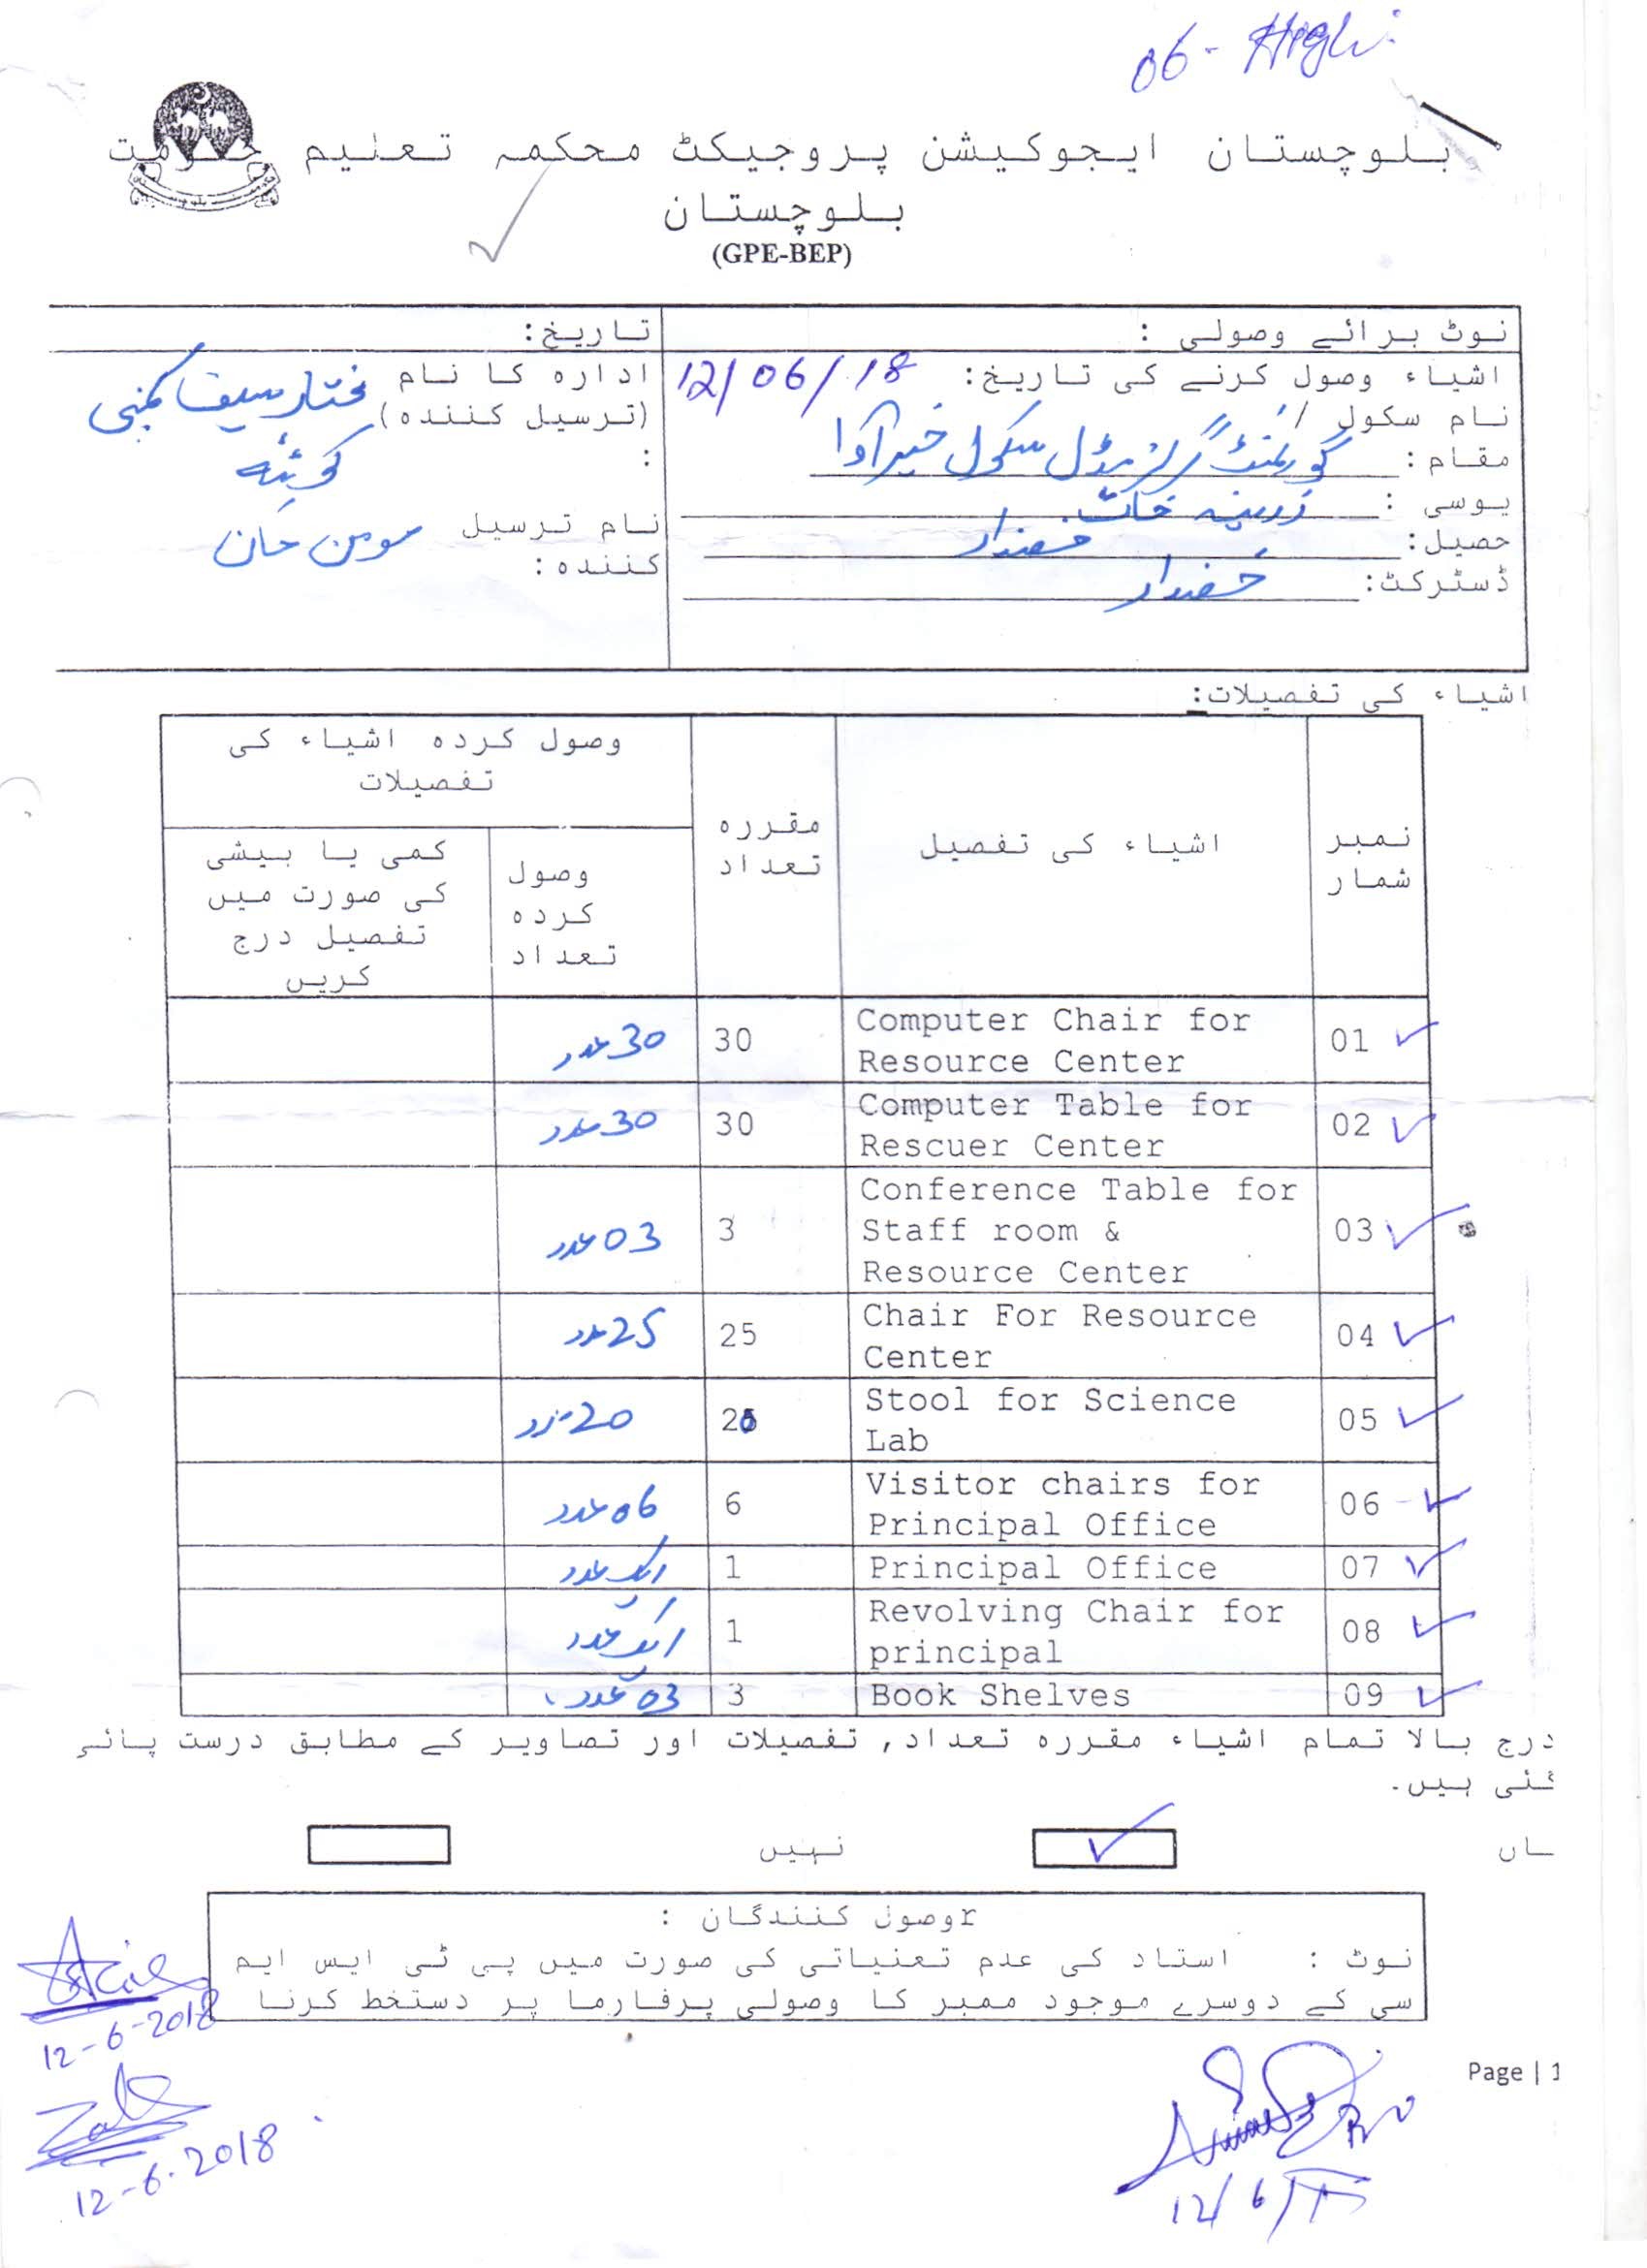 06- High
بلوچستان ایجوکیشن پروجیکٹ محکمہ تعلیم حکومت
بلوچستان
(GPE-BEP)
نوٹ برائے وصولی :
تاریخ:
اشیاء وصول کرنے کی تاریخ: 12/06/18
نام سکول /
مقام: گورنمنٹ گرلز مڈل سکول
یوسی : زرینہ
حصیل: خضدار
ڈسٹرکٹ: خضدار
ادارہ کا نام
(ترسیل کنندہ)
: کوئٹہ
نام ترسیل مومن خان
کنندہ:
اشیاء کی تفصیلات:
نمبر شمار
اشیاء کی تفصیل
مقررہ تعداد
وصول کردہ اشیاء کی تفصیلات
وصول کردہ تعداد
کمی یا بیشی کی صورت میں تفصیل درج کریں
01 Computer Chair for 30 30 عدد
Resource Center
02 Computer Table for 30 30 عدد
Rescuer Center
03 Conference Table for 3 03 عدد
Staff room &
Resource Center
04 Chair For Resource 25 25 عدد
Center
05 Stool for Science 20 20 عدد
Lab
06 Visitor chairs for 6 06 عدد
Principal Office
07 Principal Office 1 ایک عدد
08 Revolving Chair for 1 ایک عدد
principal
09 Book Shelves 3 03 عدد
درج بالا تمام اشیاء مقررہ تعداد, تفصیلات اور تصاویر کے مطابق درست پائی
گئی ہیں۔
ہاں
نہیں
rوصول کنندگان :
نوٹ : استاد کی عدم تعنیاتی کی صورت میں پی ٹی ایس ایم
سی کے دوسرے موجود ممبر کا وصولی پرفارما پر دستخط کرنا
12-6-2018
12-6-2018
12/6/18
Page | 1